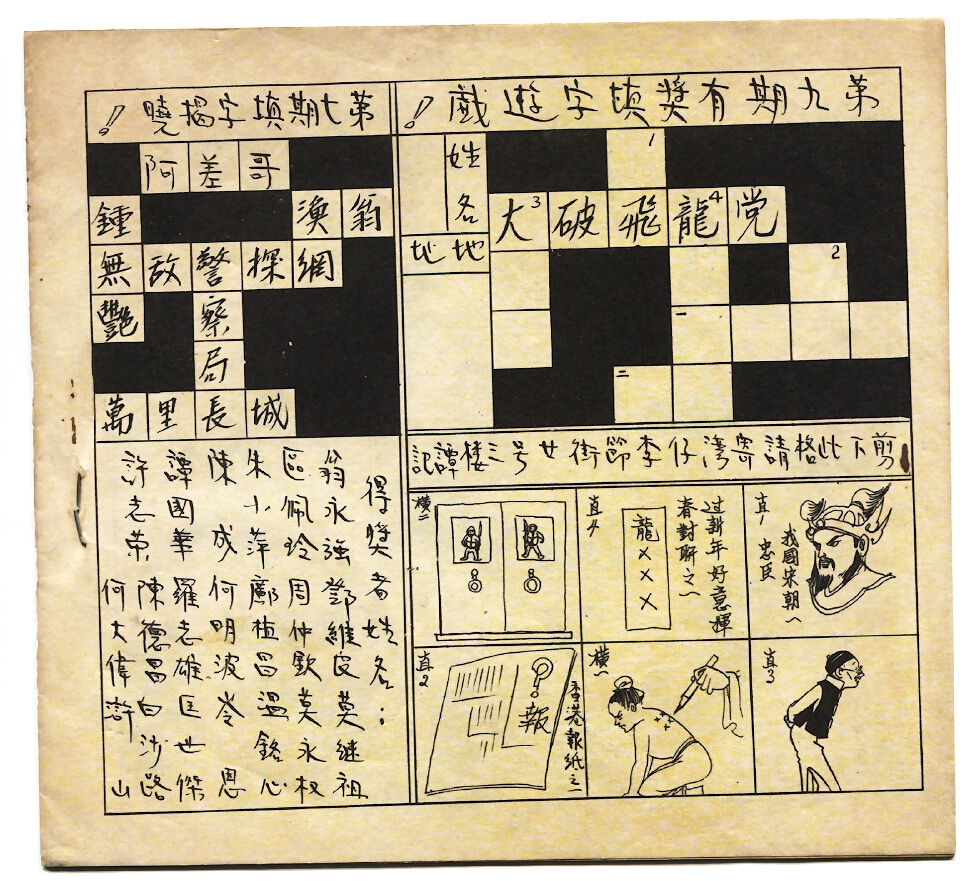 第九期有獎填字遊戲！
姓名
地址
1
大3破飛龍4党
2
一
二
剪下此格請寄灣仔李節街廿号三楼譚記
直1 我國宋朝一
忠臣
直4 过新年好意揮
春對聯之一
龍×××
横二
直3
横一
直2 香港報紙之一
報
第七期填字揭曉！
阿差哥
鍾 漁翁
無敌警探網
艷 察
局
萬里長城
得獎者姓名：
翁永強 鄧維良 莫継祖
區佩玲 周仲歐 莫永权
朱小萍 鄺植昌 溫銘心
陳成 何明波 岑恩
譚國華 羅志雄 匡世傑
許志荣 陳德昌 白沙路
何大偉 山